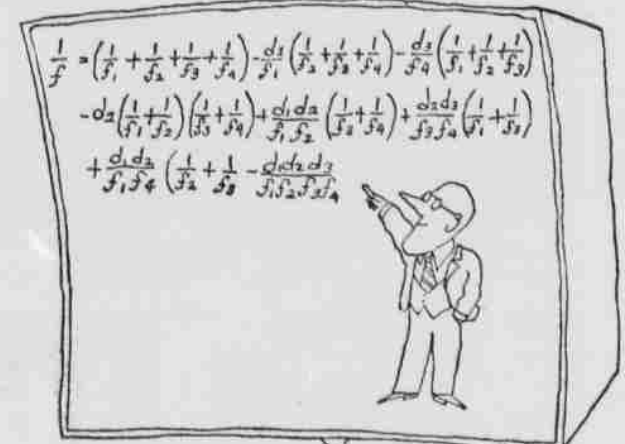 1/f = (1/f₁ + 1/f₂ + 1/f₃ + 1/f₄) - d₁/f₁ (1/f₂ + 1/f₃ + 1/f₄) - d₃/f₄ (1/f₁ + 1/f₂ + 1/f₃)
- d₂(1/f₁ + 1/f₂) (1/f₃ + 1/f₄) + d₁d₂/f₁f₂ (1/f₃ + 1/f₄) + d₂d₃/f₃f₄ (1/f₁ + 1/f₂)
+ d₁d₃/f₁f₄ (1/f₂ + 1/f₃ - d₁d₂d₃/f₁f₂f₃f₄